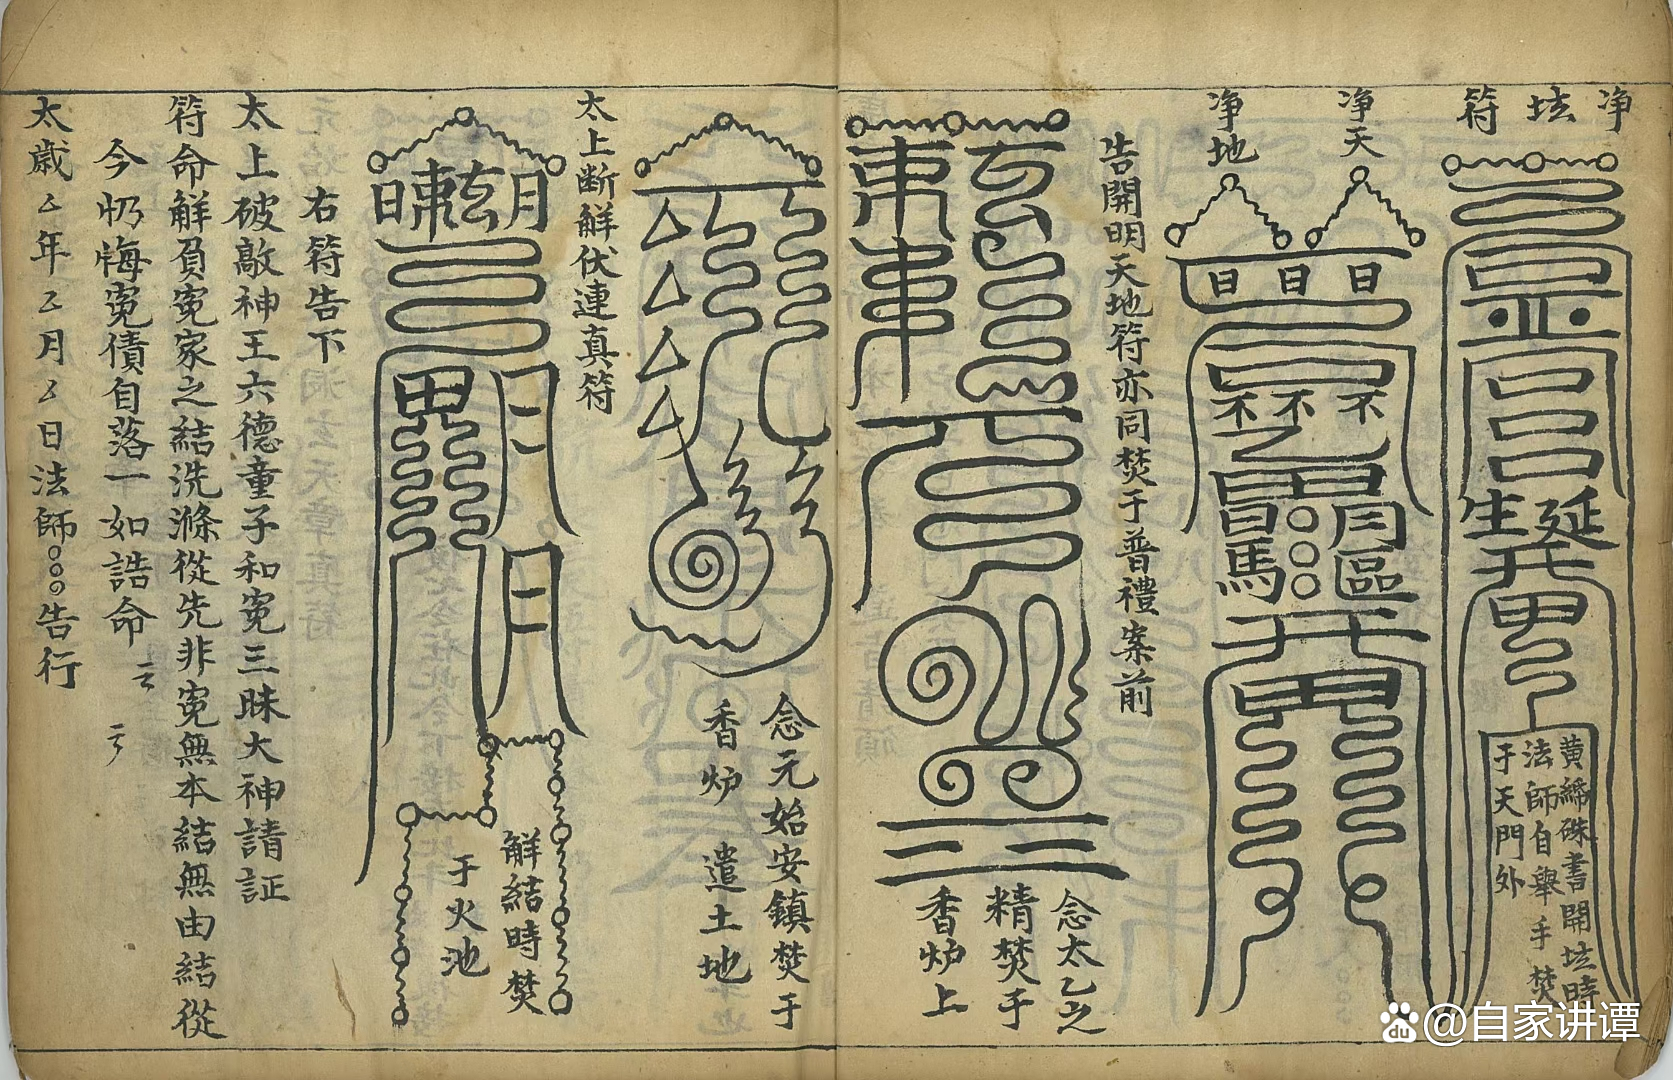 净坛符
黄繒硃書開坛時
法師自舉手焚
于天門外
净天
净地
告開明天地符亦同焚于普禮案前
念太乙之
精焚于
香炉上
念元始安鎮焚于
香炉 遣土地
太上断解伏連真符
解結時焚
于火池
右符告下
太上破敵神王六德童子和寃三昧大神請証
符命解負寃家之結洗滌從先非寃無本結無由結從
今忏悔寃債自落一如誥命
太歲 年 月 日法師○○○告行
@自家讲谭